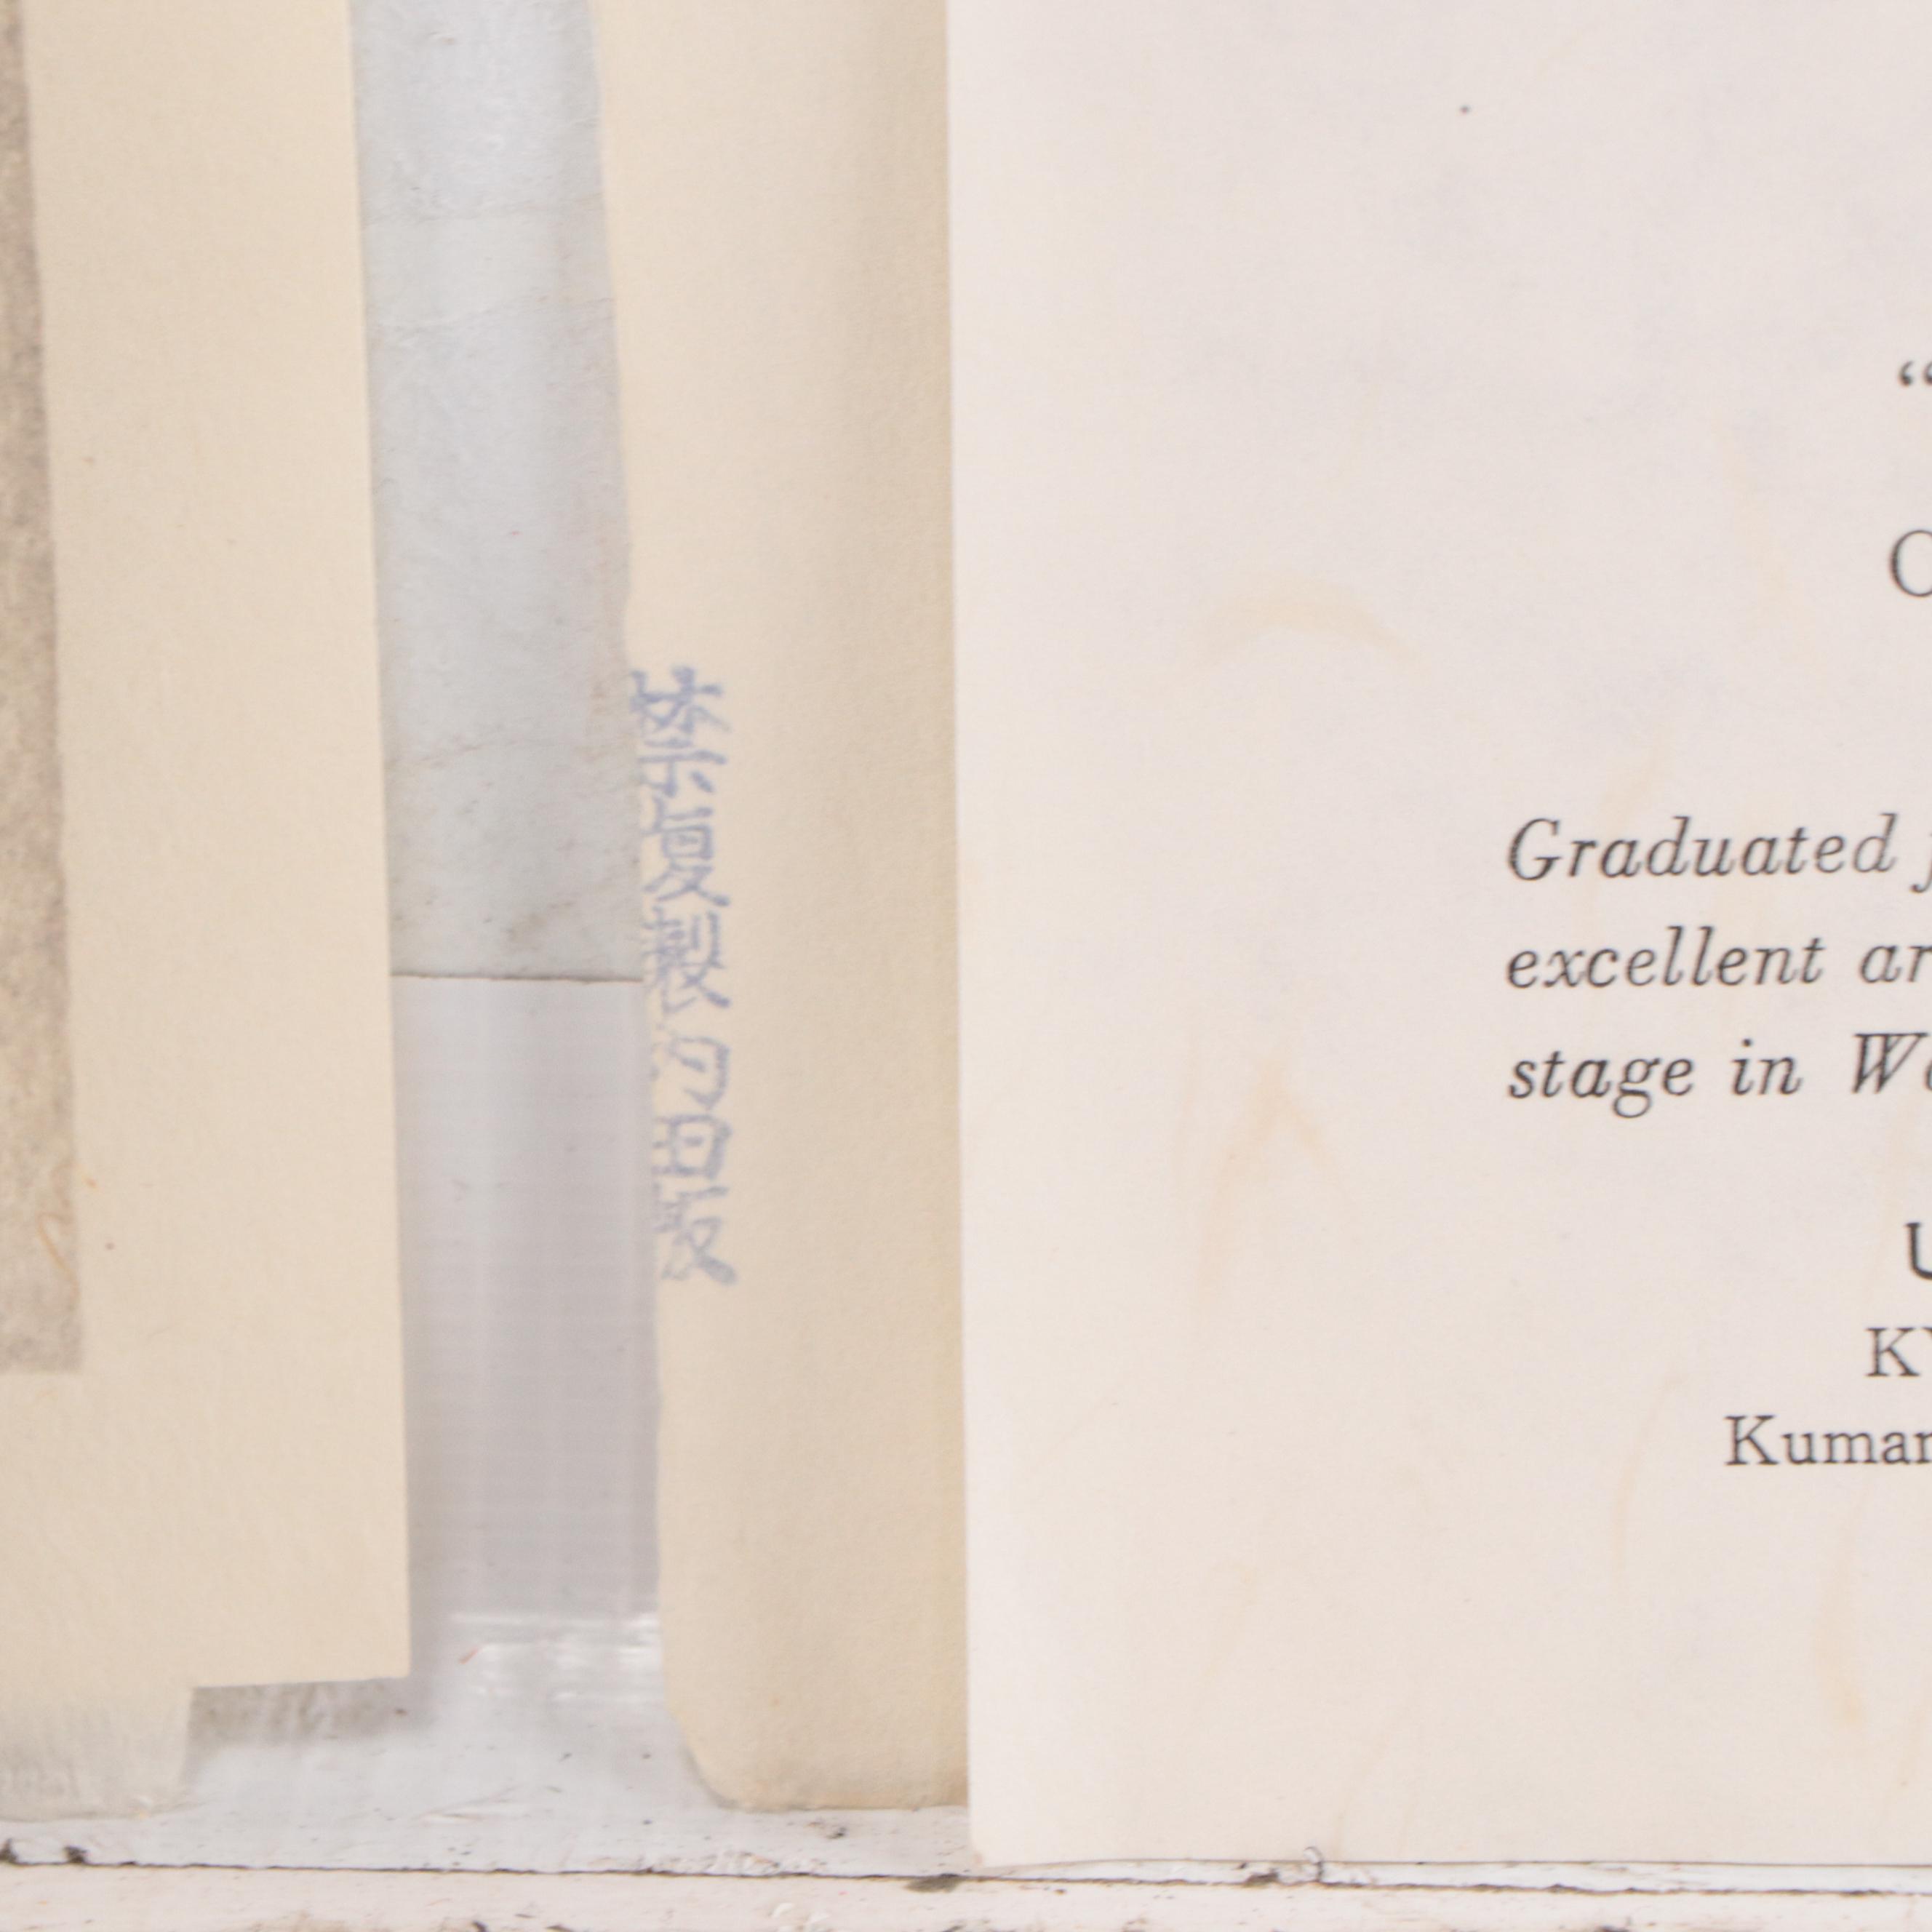 禁複製内田版
“
C
Graduated f
excellent ar
stage in Wo
U
KY
Kumar